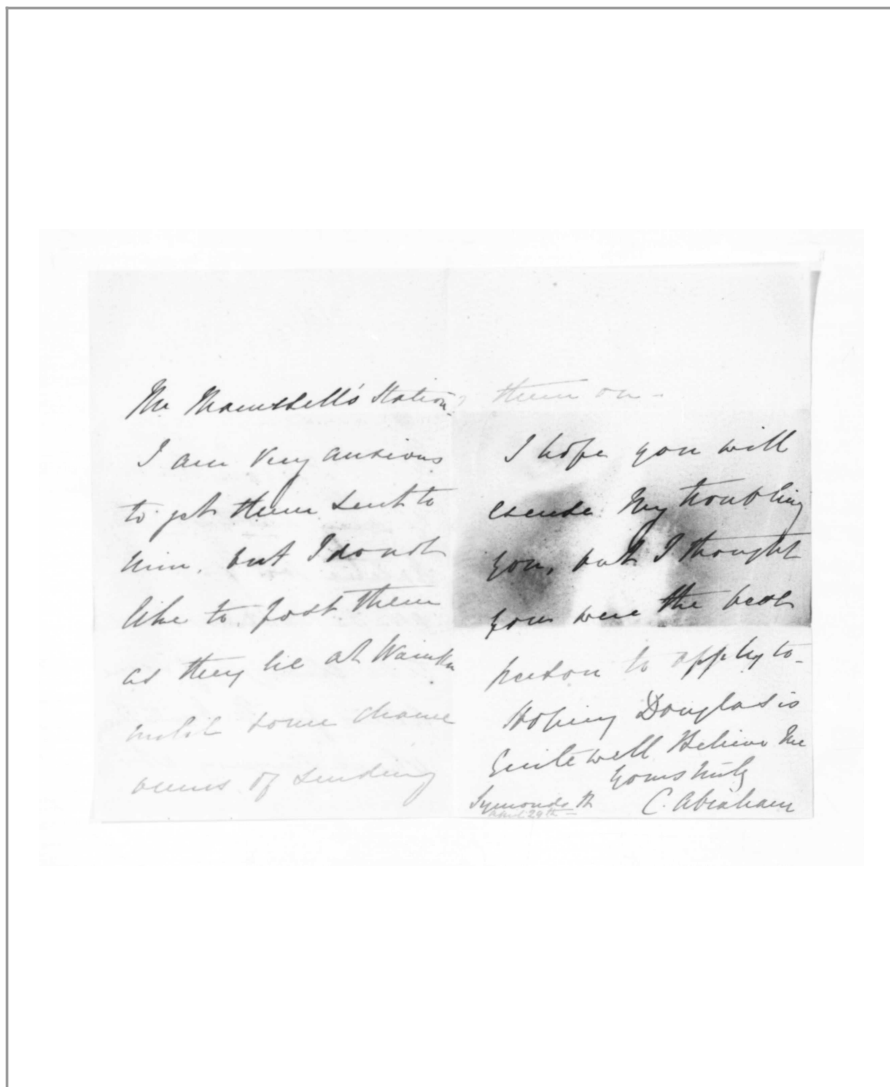 Mr Maunsell's Station.
I am very anxious
to get them sent to
him, but I do not
like to post them
as they lie at Waiuku
until some chance
occurs of sending
them on -
I hope you will
excuse my troubling
you, but I thought
you were the best
person to apply to -
Hoping Douglas is
quite well Believe me
Yours truly
C. Abraham
Symonds St
April 29th -